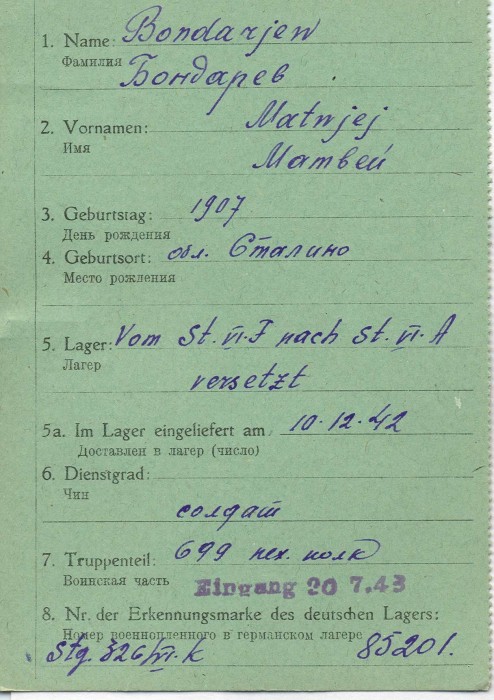 1. Name: Bondarjew
Фамилия
Бондарев
2. Vornamen: Matwjej
Имя
Матвей
3. Geburtstag: 1907
День рождения
4. Geburtsort: обл. Сталино
Место рождения
5. Lager: Vom St. VI.F nach St. VI.A
Лагер
versetzt
5a. Im Lager eingeliefert am 10.12.42
Доставлен в лагер (число)
6. Dienstgrad:
Чин
солдат
7. Truppenteil: 699 пех. полк
Воинская часть
Eingang 20 7.43
8. Nr. der Erkennungsmarke des deutschen Lagers:
Номер военнопленного в германском лагере
Stg. 326/VI.K 85201.